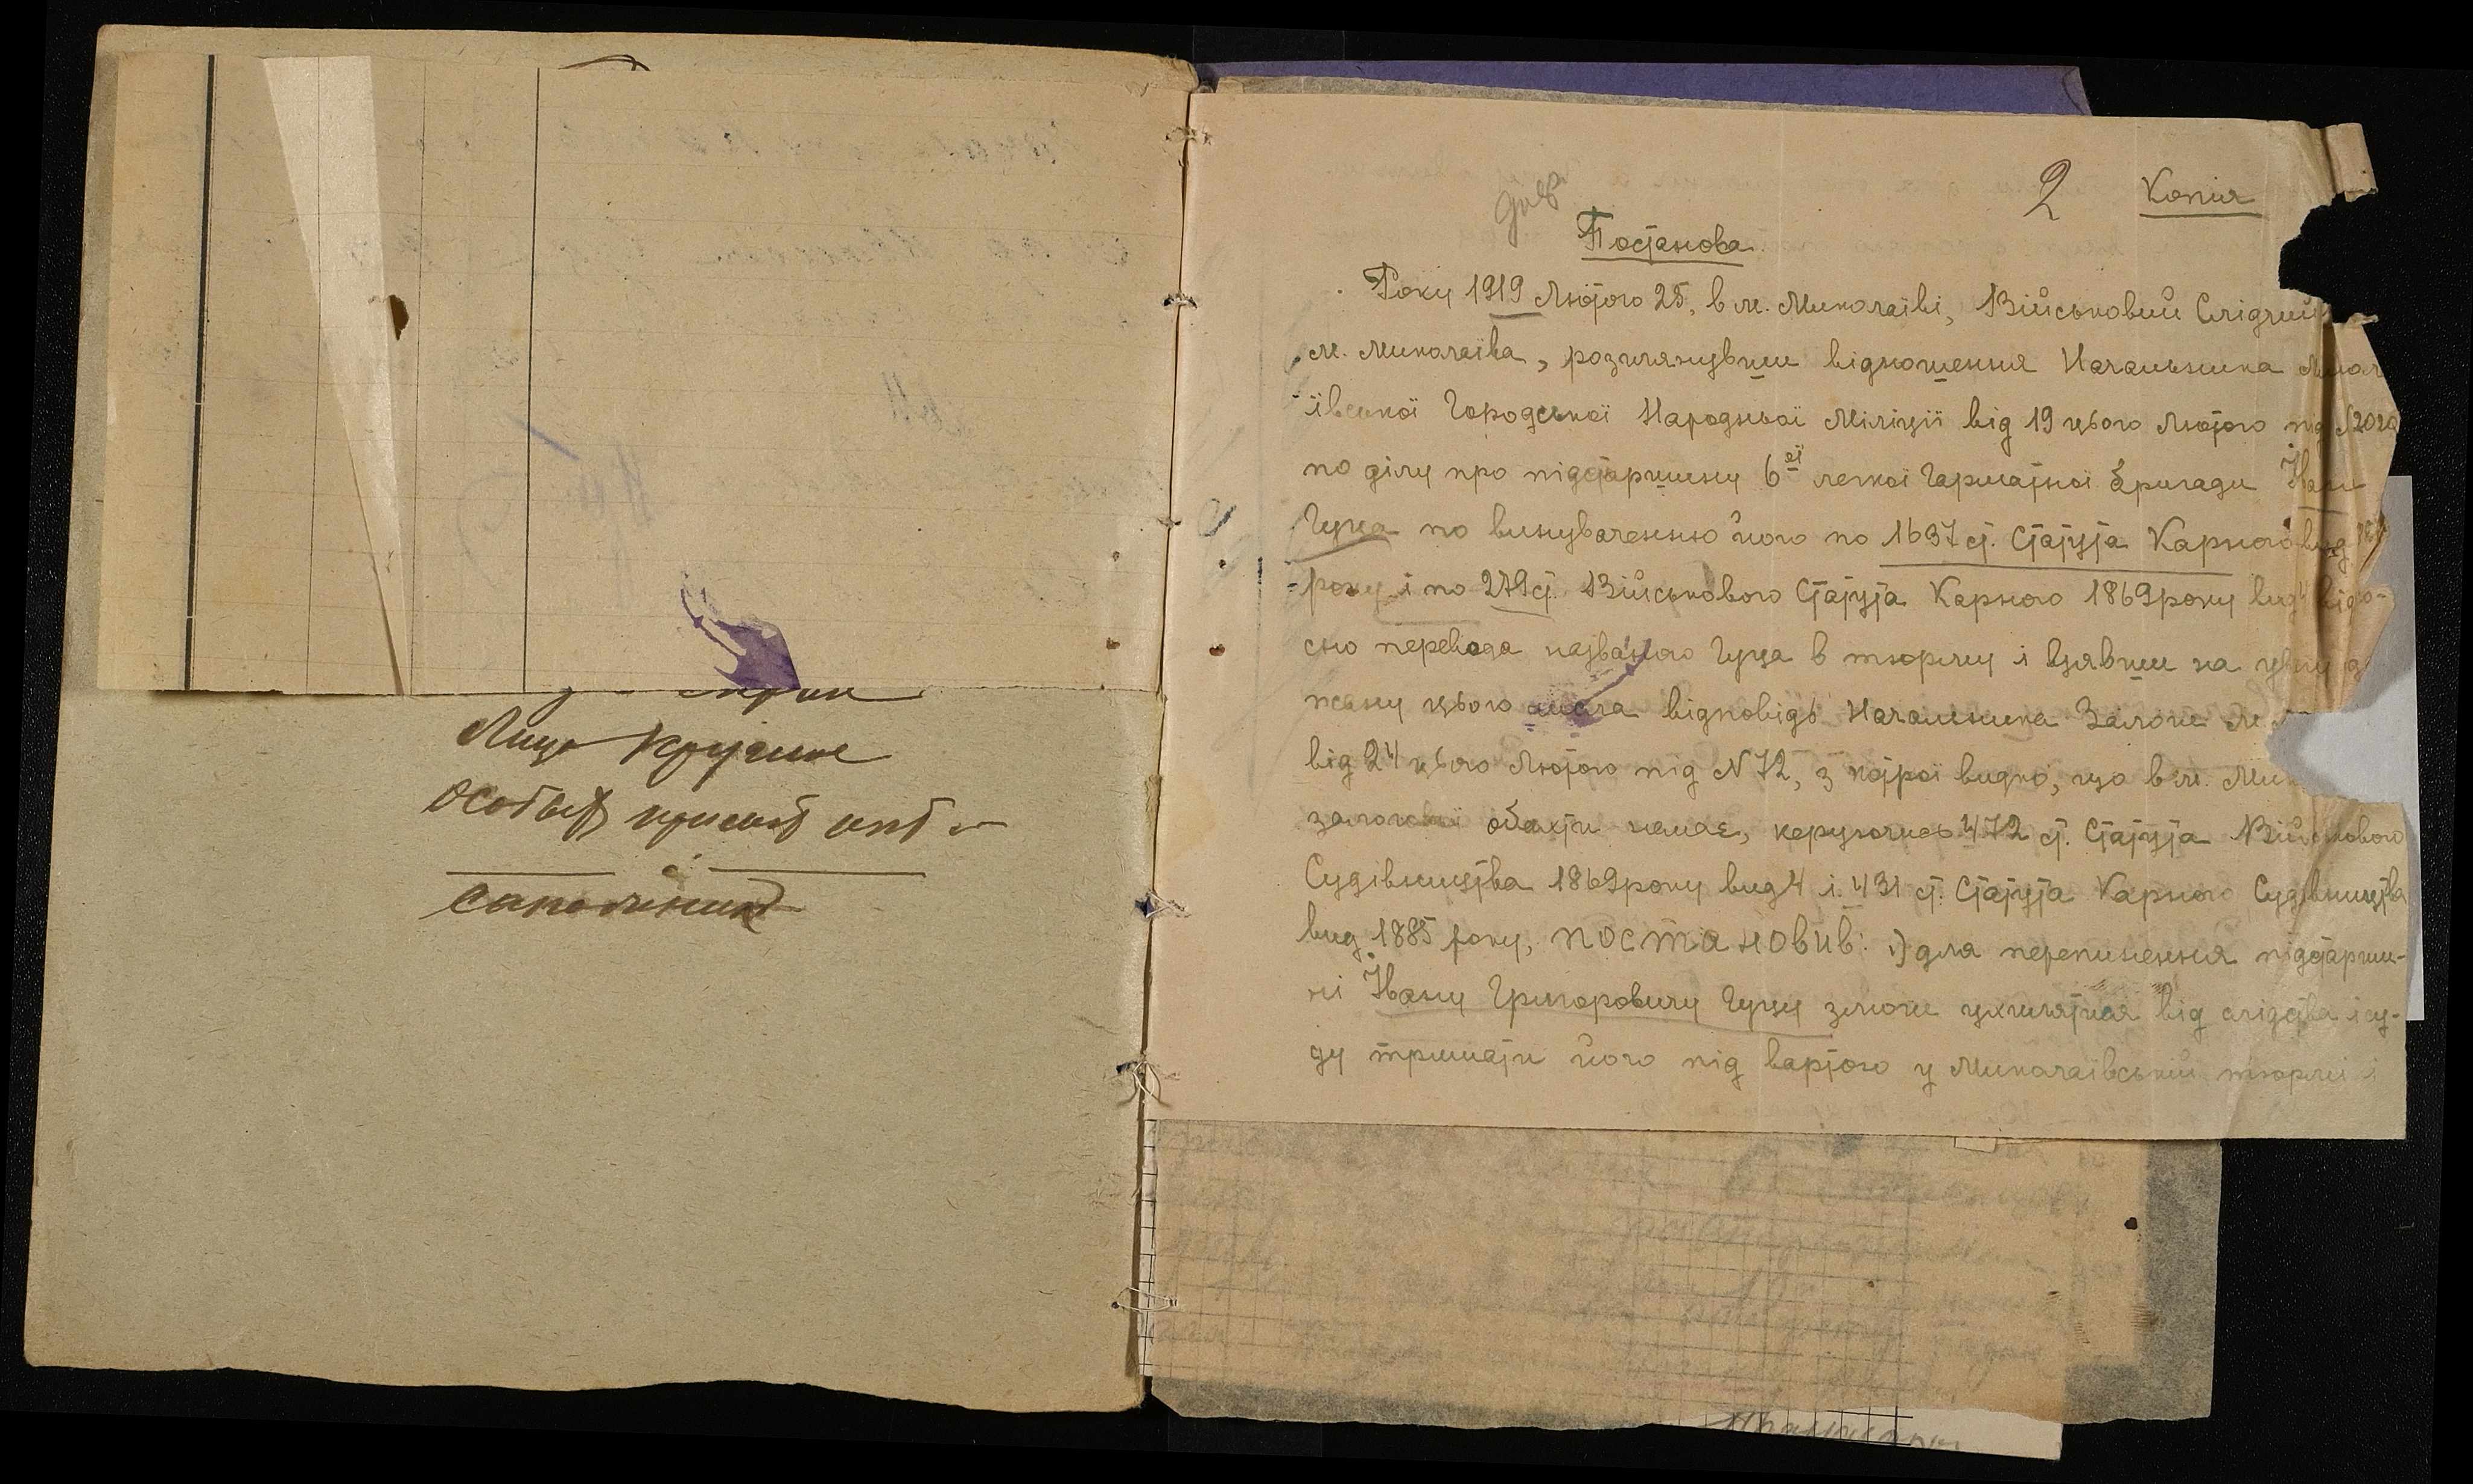 Лицо круглое
Особыя приметы нет
2 Копія
Постанова.
Року 1919 Лютого 25, в м. Миколаїві, Військовий Слідчий
м. Миколаїва, розглянувши відношення Начальника
ївської Городської Народньої Міліції від 19 цього Лютого під
по ділу про підстаршину 6ої легкої Гарматної Бригади
Гуца по винуваченню його по 1637 ст. Статута Карного вид
року і по 279 ст. Військового Статута Карного 1869 року вид 4 відно-
сно перевода названого Гуца в тюрму і взявши на увагу
цього числа відповідь Начальника Залоги м.
від 24 цього Лютого під N 72, з котрої видно, що в м. Мик
залогової вахти немає, керуючись 472 ст. Статута Військового
Судівництва 1869 року вид 4 і 431 ст. Статута Карного Судівництва
вид 1885 року, постановив: 1) для перепинення підстарши-
ні Івану Григоровичу Гуцу змоги ухилятися від слідства і су-
ду тримати його під вартою у Миколаївській тюрмі і